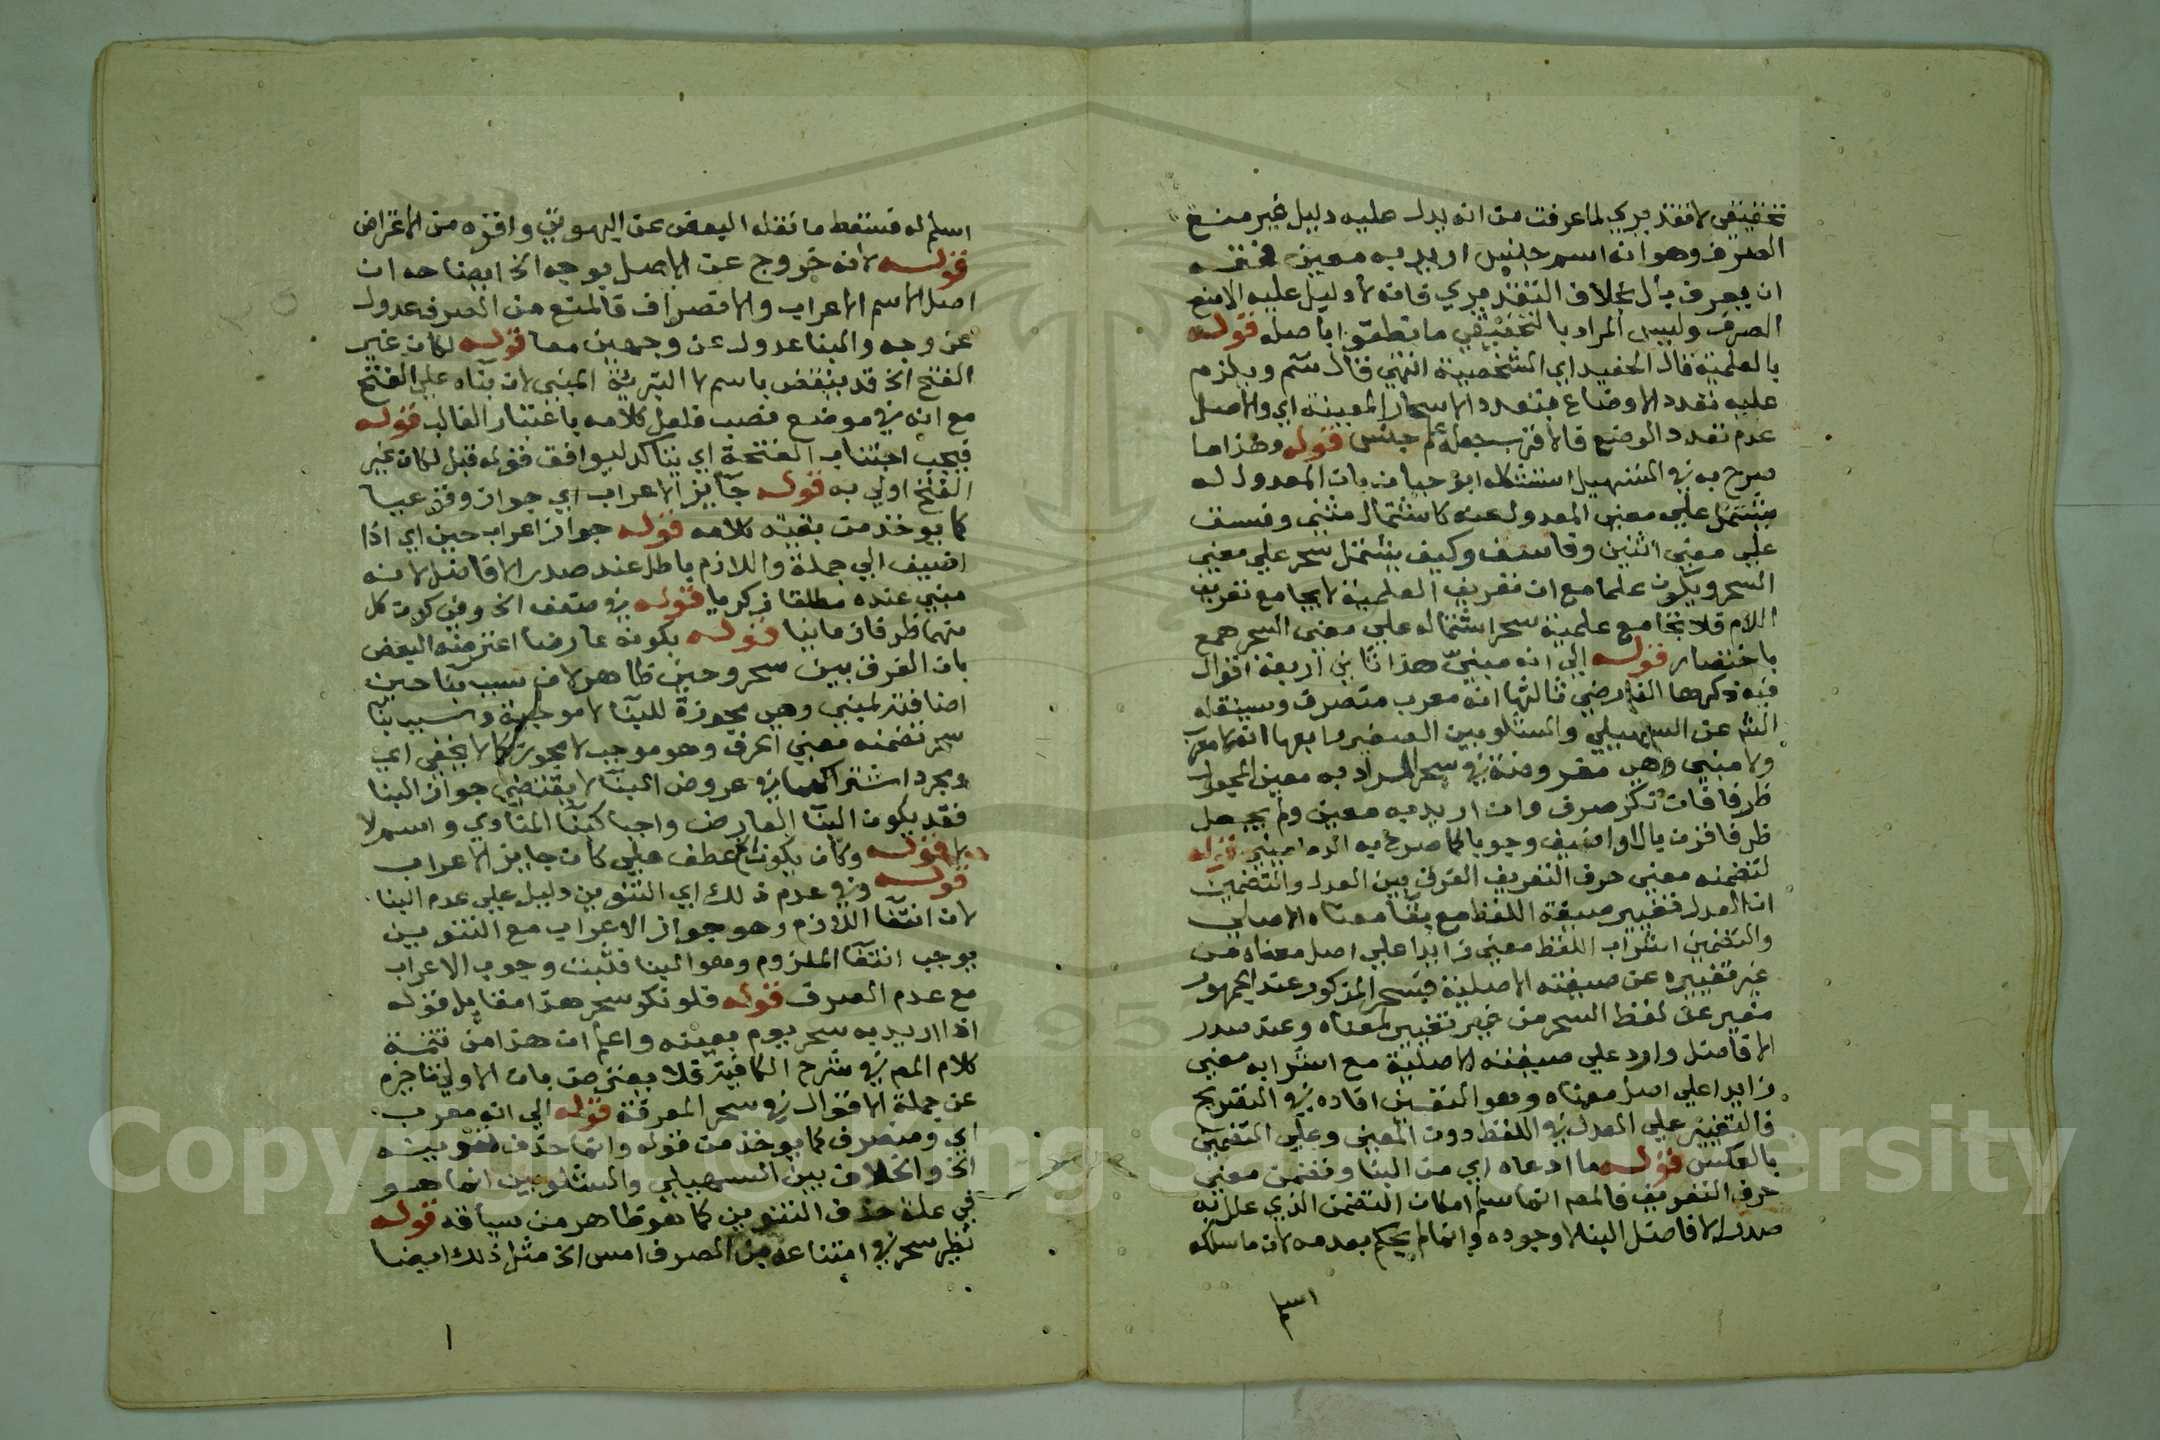 تحقيقي لا تقديري لما عرفت من انه يدل عليه دليل غير منع
الصرف وهو انه اسم جنس اريد به معين فحقه
ان يعرف بأل بخلاف التقديري فانه لا دليل عليه الا منع
الصرف وليس المراد بالتحقيقي ما نطقوا باصله قوله
بالعلمية قال الحفيد اي الشخصية انتهى قال سم ويلزم
عليه تعدد الاوضاع بتعدد الاسحار المعينة اي والاصل
عدم تعدد الوضع فالاقرب جعله علم جنس قوله وهذا ما
صرح به في التسهيل استشكله ابو حيان بان المعدول له
يشتمل على معنى المعدول عنه كاشتمال مثنى وفسق
على معنى اثنين وفاسق وكيف يشتمل سحر على معنى
السحر ويكون علما مع ان تعريف العلمية لا يجامع تعريف
اللام فلا تجامع علمية سحر اشتماله على معنى السحر همع
باختصار قوله الى انه مبني هذا ثاني اربعة اقوال
فيه ذكرها الفارضي ثالثها انه معرب متصرف وسينقله
الش عن السهيلي والشلوبين الصغير رابعها انه لا معرب
ولا مبني وهي مفروضة في سحر المراد به معين المجعول
ظرفا فان نكر صرف وان اريد به معين ولم يجعل
ظرفا قرن بال او اضيف وجوبا كما صرح به الدماميني قوله
لتضمنه معنى حرف التعريف الفرق بين العدل والتضمين
ان العدل تغيير صيغة اللفظ مع بقآ معناه الاصلي
والتضمين اشراب اللفظ معنى زايدا على اصل معناه من
غير تغييره عن صيغته الاصلية فسحر المذكور عند الجمهور
مغير عن لفظ السحر من غير تغيير لمعناه وعند صدر
الافاضل وارد على صيغته الاصلية مع اشرابه معنى
زايدا على اصل معناه وهو التعيين افاده في التصريح
فالتغيير على العدل في اللفظ دون المعنى وعلى التضمين
بالعكس قوله ما ادعاه اي من البنا وتضمن معنى
حرف التعريف فالمص انما سلم امكان التضمن الذي علل به
صدر الافاضل البنا لا وجوده وانما لم يحكم بعدمه لان ما سلكه
اسلم
اسلم له فسقط ما نقله البعض عن البهوتي واقره من الاعتراض
قوله لانه خروج عن الاصل بوجه الخ ايضاحه ان
اصل الاسم الاعراب والانصراف فالمنع من الصرف عدول
عن وجه والبنا عدول عن وجهين معا قوله لكان غير
الفتح الخ قد ينقض باسم لا التبرئة المبني لان بنآه على الفتح
مع انه في موضع نصب فلعل كلامه باعتبار الغالب قوله
فيجب اجتناب الفتحة اي يتاكد ليوافق قوله قبل لكان غير
الفتح اولى به قوله جآيز الاعراب اي جواز وقوعيا
كما يوخذ من بقية كلامه قوله جواز اعراب حين اي اذا
اضيف الى جملة واللازم باطل عند صدر الافاضل لانه
مبني عنده مطلقا زكريا قوله في ضعف الخ وفي كون كل
منهما ظرف زمانيا قوله بكونه عارضا اعترضه البعض
بان الفرق بين سحر وحين ظاهر لان سبب بنا حين
اضافته لمبني وهي مجوزة للبنآ لا موجبة وسبب بنا
سحر تضمنه معنى الحرف وهو موجب لا مجوز كما لا يخفى اي
ومجرد اشتراكهما في عروض البنآ لا يقتضي جواز البنا
فقد يكون البنآ العارض واجبا كبنآ المنادى واسم لا
قوله وكان يكون عطف على كان جايز الاعراب
قوله وفي عدم ذلك اي التنوين دليل على عدم البنا
لان انتفآ اللازم وهو جواز الاعراب مع التنوين
يوجب انتفآ الملزوم وهو البنا فثبت وجوب الاعراب
مع عدم الصرف قوله فلو نكر سحر هذا مقابل قوله
اذا اريد به سحر يوم بعينه واعلم ان هذا من تتمة
كلام المص في شرح الكافية فلا يعترض بان الاولى تاخيره
عن جملة الاقوال في سحر المعرفة قوله الى انه معرب
اي ومنصرف كما يوخذ من قوله وانما حذف تنوينه
الخ والخلاف بين السهيلي والشلوبين انما هو
في علة حذف التنوين كما هو ظاهر من سياقه قوله
نظير سحر في امتناعه من الصرف امس الخ مثل ذلك ايضا